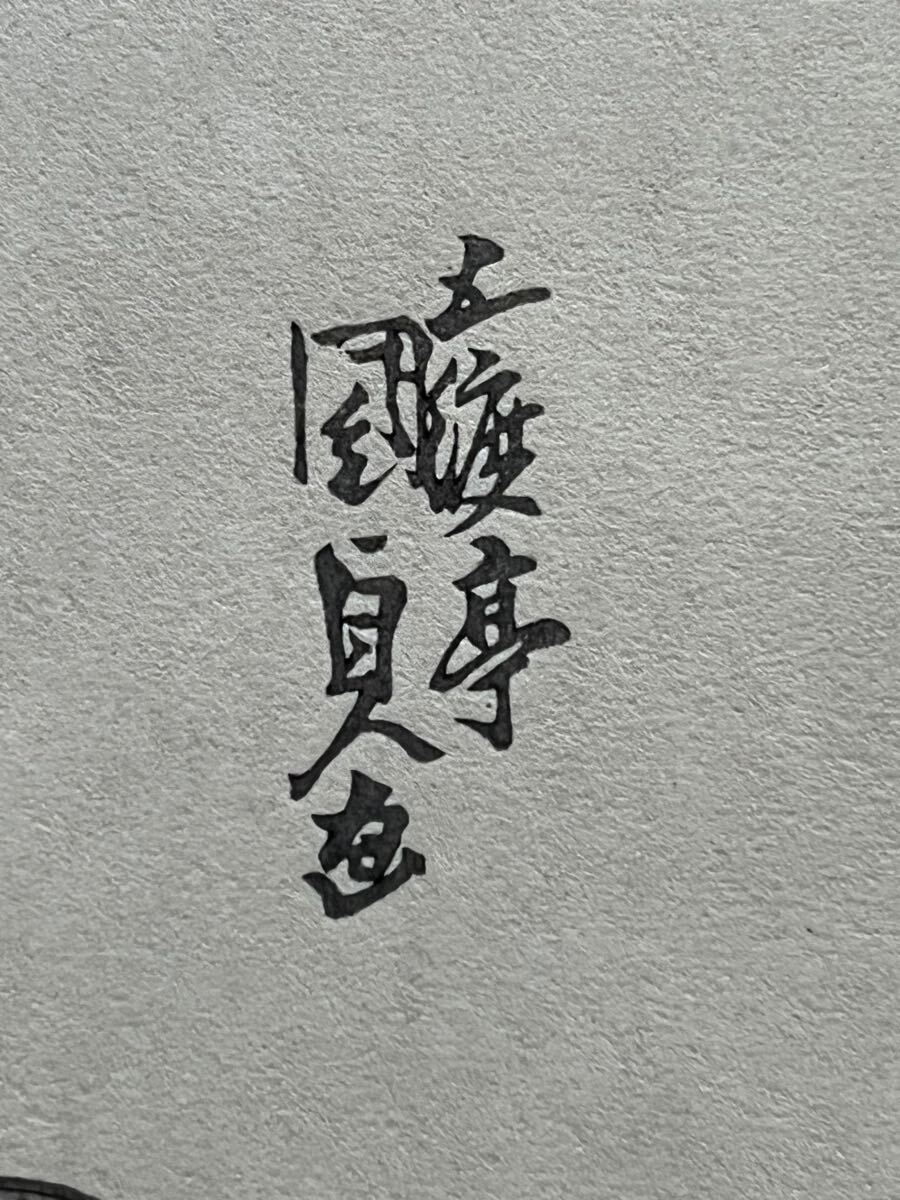 五渡亭
國貞画